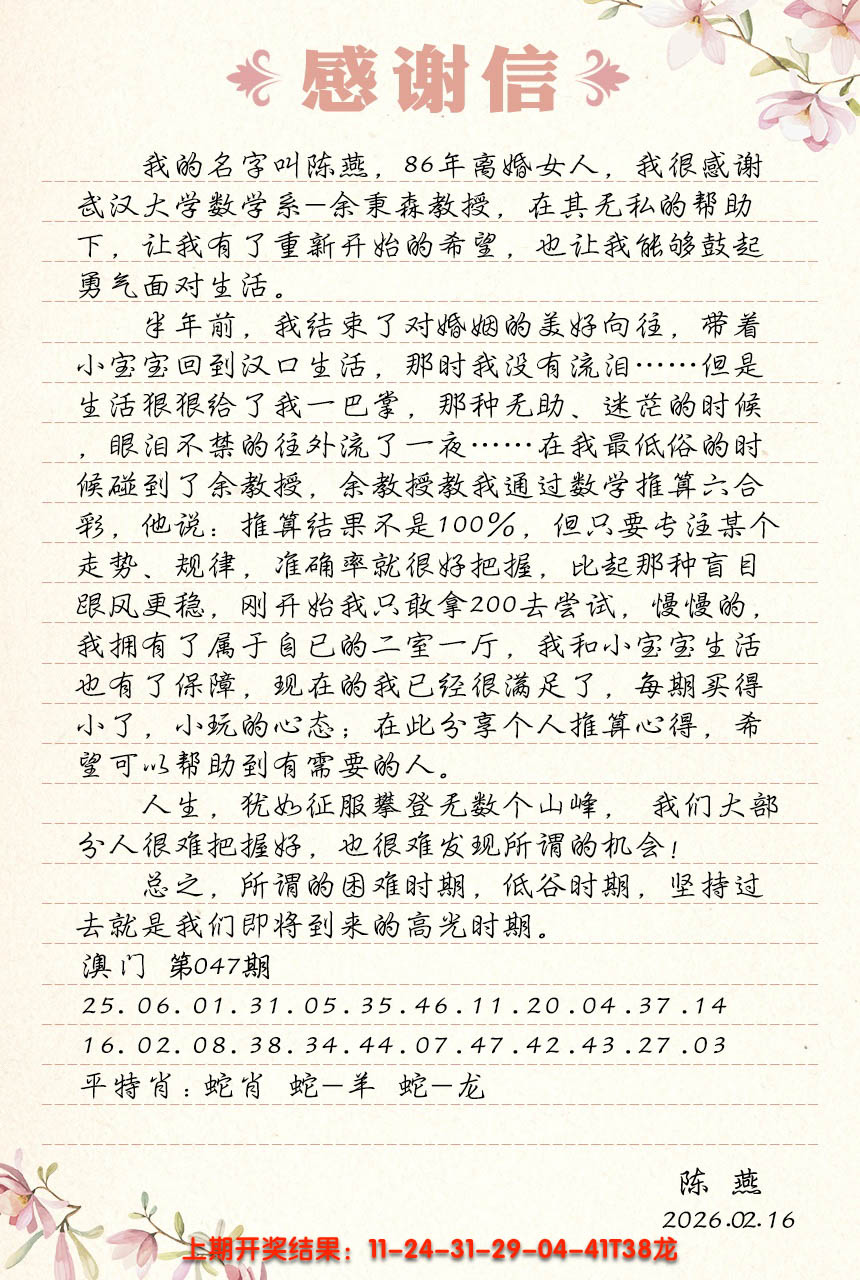 感谢信
我的名字叫陈燕，86年离婚女人，我很感谢
武汉大学数学系—余秉森教授，在其无私的帮助
下，让我有了重新开始的希望，也让我能够鼓起
勇气面对生活。
半年前，我结束了对婚姻的美好向往，带着
小宝宝回到汉口生活，那时我没有流泪……但是
生活狠狠给了我一巴掌，那种无助、迷茫的时候
，眼泪不禁的往外流了一夜……在我最低俗的时
候碰到了余教授，余教授教我通过数学推算六合
彩，他说：推算结果不是100%，但只要专注某个
走势、规律，准确率就很好把握，比起那种盲目
跟风更稳，刚开始我只敢拿200去尝试，慢慢的，
我拥有了属于自己的二室一厅，我和小宝宝生活
也有了保障，现在的我已经很满足了，每期买得
小了，小玩的心态；在此分享个人推算心得，希
望可以帮助到有需要的人。
人生，犹如征服攀登无数个山峰， 我们大部
分人很难把握好，也很难发现所谓的机会！
总之，所谓的困难时期，低谷时期，坚持过
去就是我们即将到来的高光时期。
澳门 第047期
25.06.01.31.05.35.46.11.20.04.37.14
16.02.08.38.34.44.07.47.42.43.27.03
平特肖：蛇肖 蛇—羊 蛇—龙
陈 燕
2026.02.16
上期开奖结果：11-24-31-29-04-41T38龙